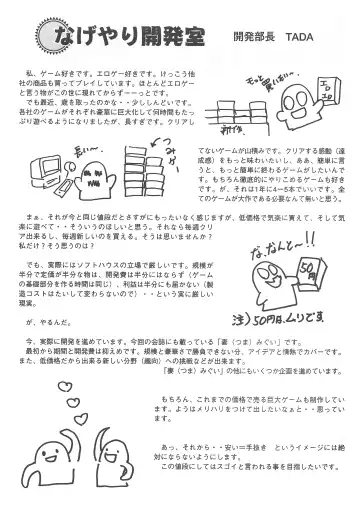 なげやり開発室
開発部長　TADA
私、ゲーム好きです。エロゲー好きです。けっこう他
社の商品も買ってプレイしています。ほとんどエロゲー
と言う物がこの世に現れてからずーーっとです。
でも最近、歳を取ったのかな・・少ししんどいです。
各社のゲームがそれぞれ豪華に巨大化して何時間もたっ
ぷり遊べるようになりましたが、長すぎです。クリアし
もっと買いたい〜
エロ
エロ
新作
長い〜
つみゲー
てないゲームが山積みです。クリアする感動（達
成感）をもっと味わいたいし、ああ、簡単に言
うと、もっと簡単に終わるゲームがしたいんで
す。もちろん徹底的にやりこめるゲームも好き
です。が、それは1年に4ー5本でいいです。全
てのゲームが大作である必要なんて無いと思う。
まぁ、それが今と同じ値段だとさすがにもったいなく感じますが、低価格で気楽に買えて、そして気
楽に遊べて・・そういうのほしいと思う。それなら毎週クリ
ア出来るし、毎週新しいのを買える。そうは思いませんか？
私だけ？そう思うのは？
でも、実際にはソフトハウスの立場で厳しいです。規模が
半分で定価が半分な物は、開発費は半分にはならず（ゲーム
の基礎部分を作る時間は同じ）、利益は半分にも届かない（製
造コストはたいして変わらないので）・・という実に厳しい
現実。
な、なんと〜!!
50円
注）50円は、ムリです
が、やるんだ。
今、実際に開発を進めています。今回の会誌にも載っている「妻（つま）みぐい」です。
最初から期間と開発費は抑えめです。規模と豪華さで勝負できない分、アイデアと情熱でカバーです。
また、低価格だから出来る新しい分野（趣向）への挑戦などが出来ます。
「妻（つま）みぐい」の他にもいくつか企画を進めています。
もちろん、これまでの価格で売る巨大ゲームも制作してい
ます。ようはメリハリをつけて出したいなぁと・・思ってい
ます。
あっ、それから・・安い＝手抜き　というイメージには絶
対にならないようにします。
この値段にしてはスゴイと言われる事を目指したいです。